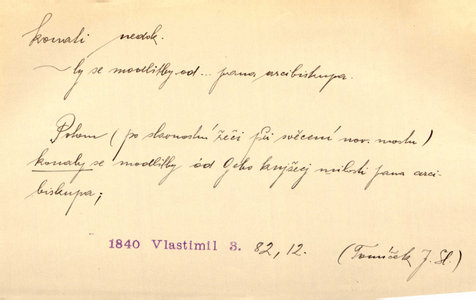 konati nedok.
~ly se modlitby od... pana arcibiskupa.
Potom (po slavnostní řeči při svěcení nov. mostu)
konaly se modlitby od Geho knjžecj milosti pana arci-
biskupa;
1840 Vlastimil 3. 82, 12. (Tomíček J. Sl.)